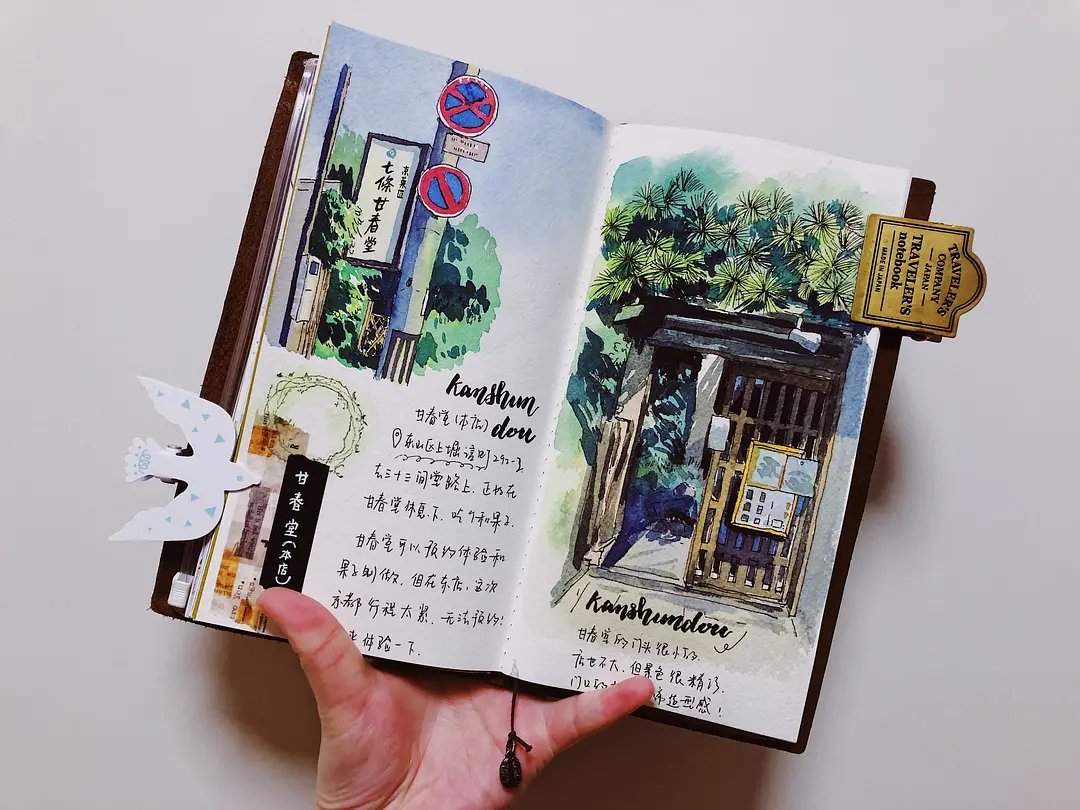 京東山
七條甘春堂
Kanshun
dou
甘春堂(本店)
东山区上堀詰町292-2
在三十三间堂路上,正好在
甘春堂休息下,吃个和果子.
甘春堂可以预约体验和
果子制做,但在东店,这次
京都行程太紧,无法预约!
体验一下.
甘春堂(本店)
Kanshundou
甘春堂的门头很小巧,
店也不大,但景色很精巧.
门口的
造型感!
TRAVELER'S
COMPANY
JAPAN
TRAVELER'S
notebook
MADE IN JAPAN